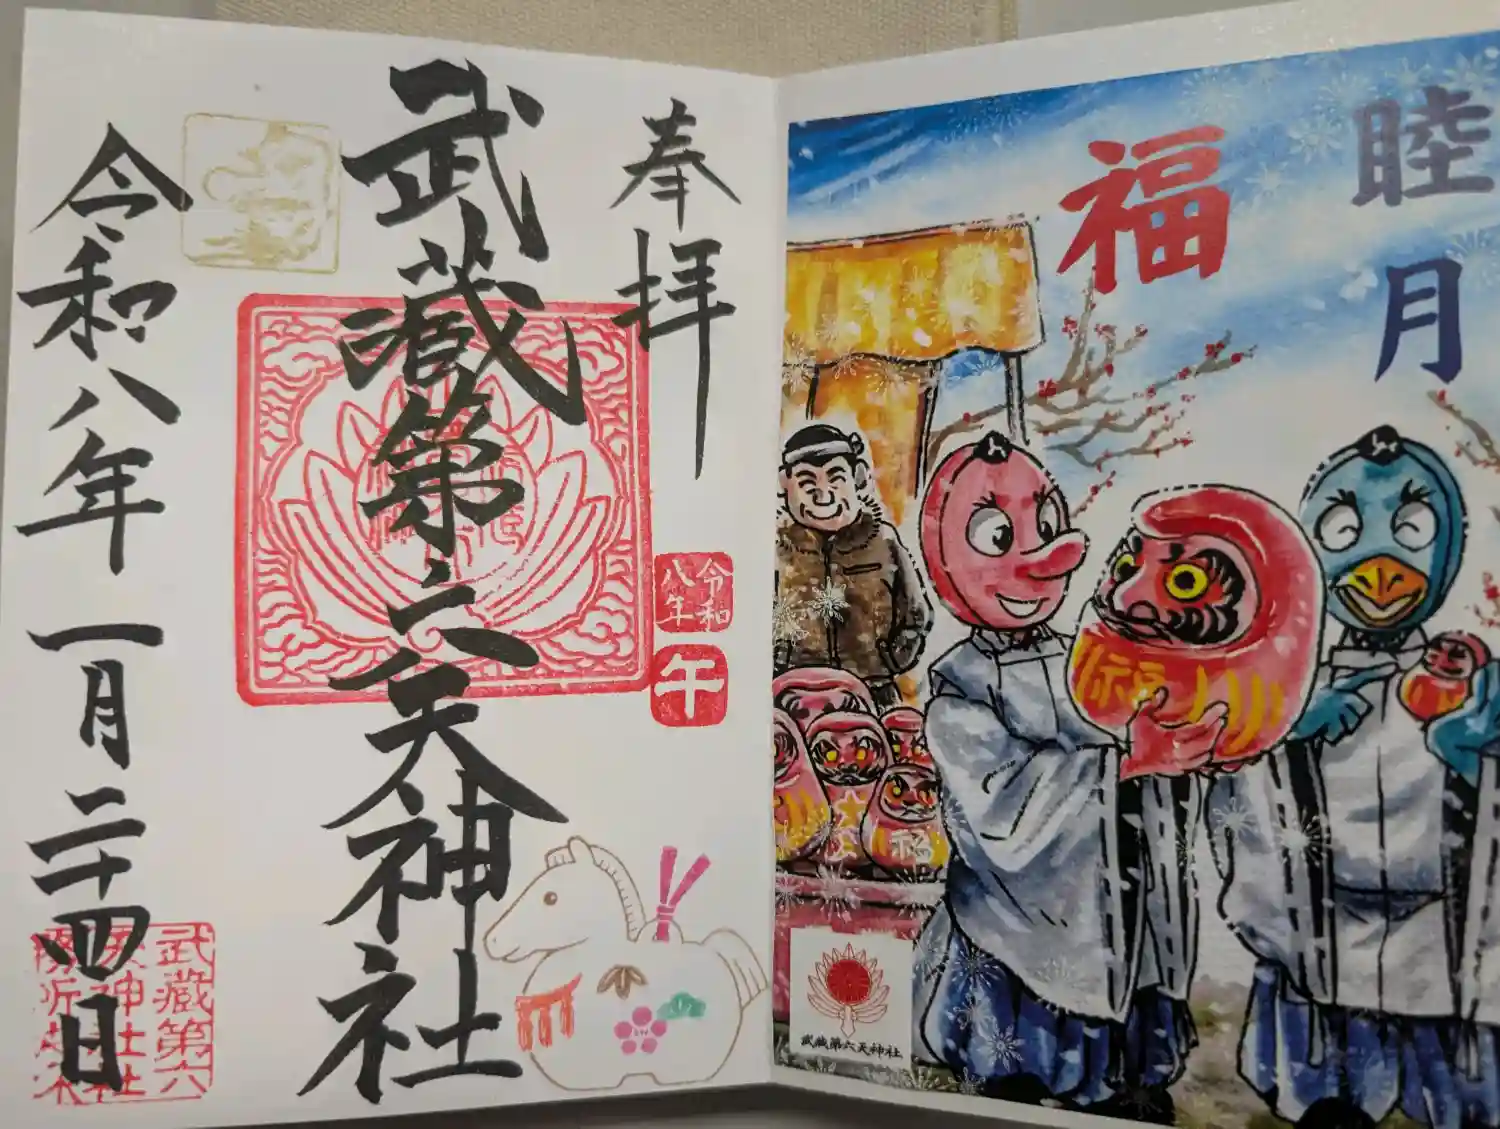 奉拝
武蔵第六天神社
令和八年一月二十四日
令和
八年
午
武蔵第六
天神社社
睦月
福
福
福
武蔵第六天神社